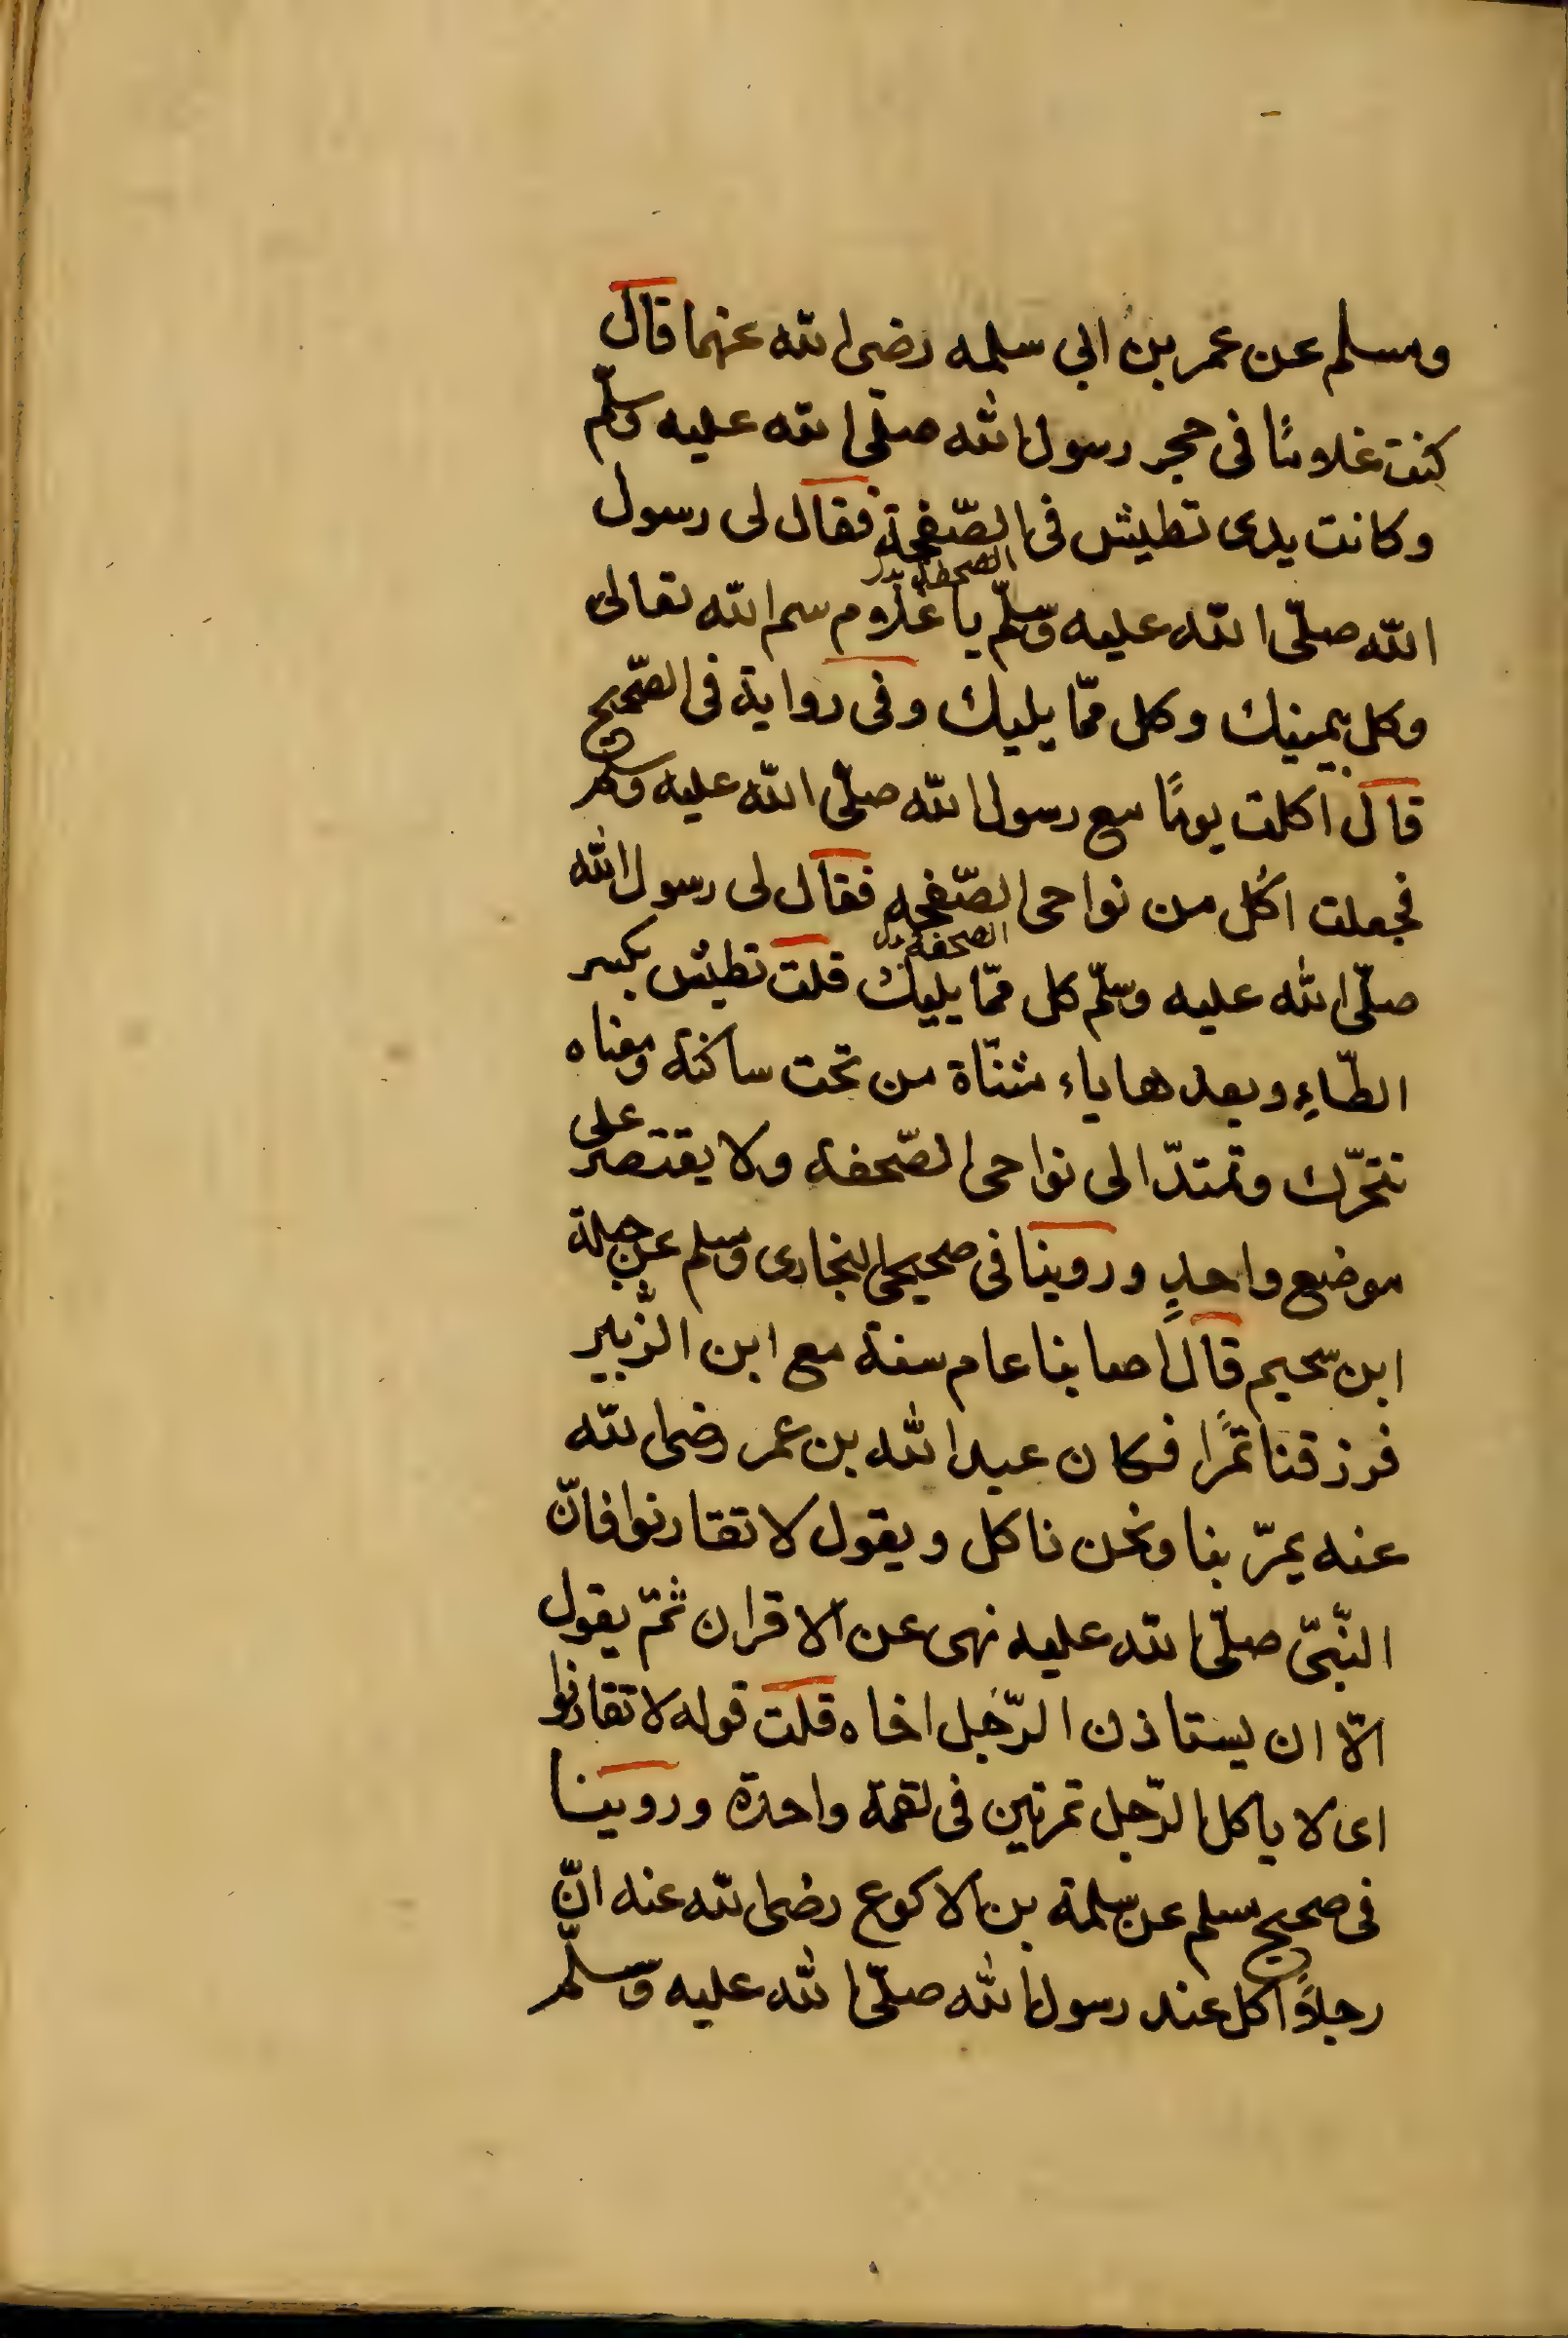 ومسلم عن عمر بن ابي سلمه رضى الله عنهما قال
كنت غلامًا فى حجر رسول الله صلّى الله عليه وسلّم
وكانت يدى تطيش فى الصّفحة فقال لى رسول
الصحفة بدل
الله صلّى الله عليه وسلّم يا غلام سم الله تعالى
وكل بيمينك وكل ممّا يليك وفى رواية فى الصّحيح
قال اكلت يومًا مع رسول الله صلّى الله عليه وسلم
فجعلت اكل من نواحى الصّفحه فقال لى رسول الله
الصحفه بدل
صلّى الله عليه وسلّم كل ممّا يليك قلت تطيش بكسر
الطّاءِ وبعدها ياء مثنّاة من تحت ساكنة ومعناه
تتحرّك وتمتدّ الى نواحى الصّحفة ولا يقتصر على
موضع واحدٍ وروينا فى صحيحى البخارى ومسلم عن جبلة
ابن سحيم قال اصابنا عام سنة مع ابن الزّبير
فرزقنا تمرًا فكان عبد الله بن عمر رضى الله
عنه يمرّ بنا ونحن ناكل ويقول لا تقارنوا فانّ
النّبىّ صلّى الله عليه نهى عن الاقران ثمّ يقول
الّا ان يستاذن الرّجل اخاه قلت قوله لا تقارنوا
اى لا ياكل الرّجل تمرتين فى لقمة واحدة وروينا
فى صحيح مسلم عن سلمة بن الاكوع رضى الله عنه انّ
رجلًا اكل عند رسول الله صلّى الله عليه وسلّم